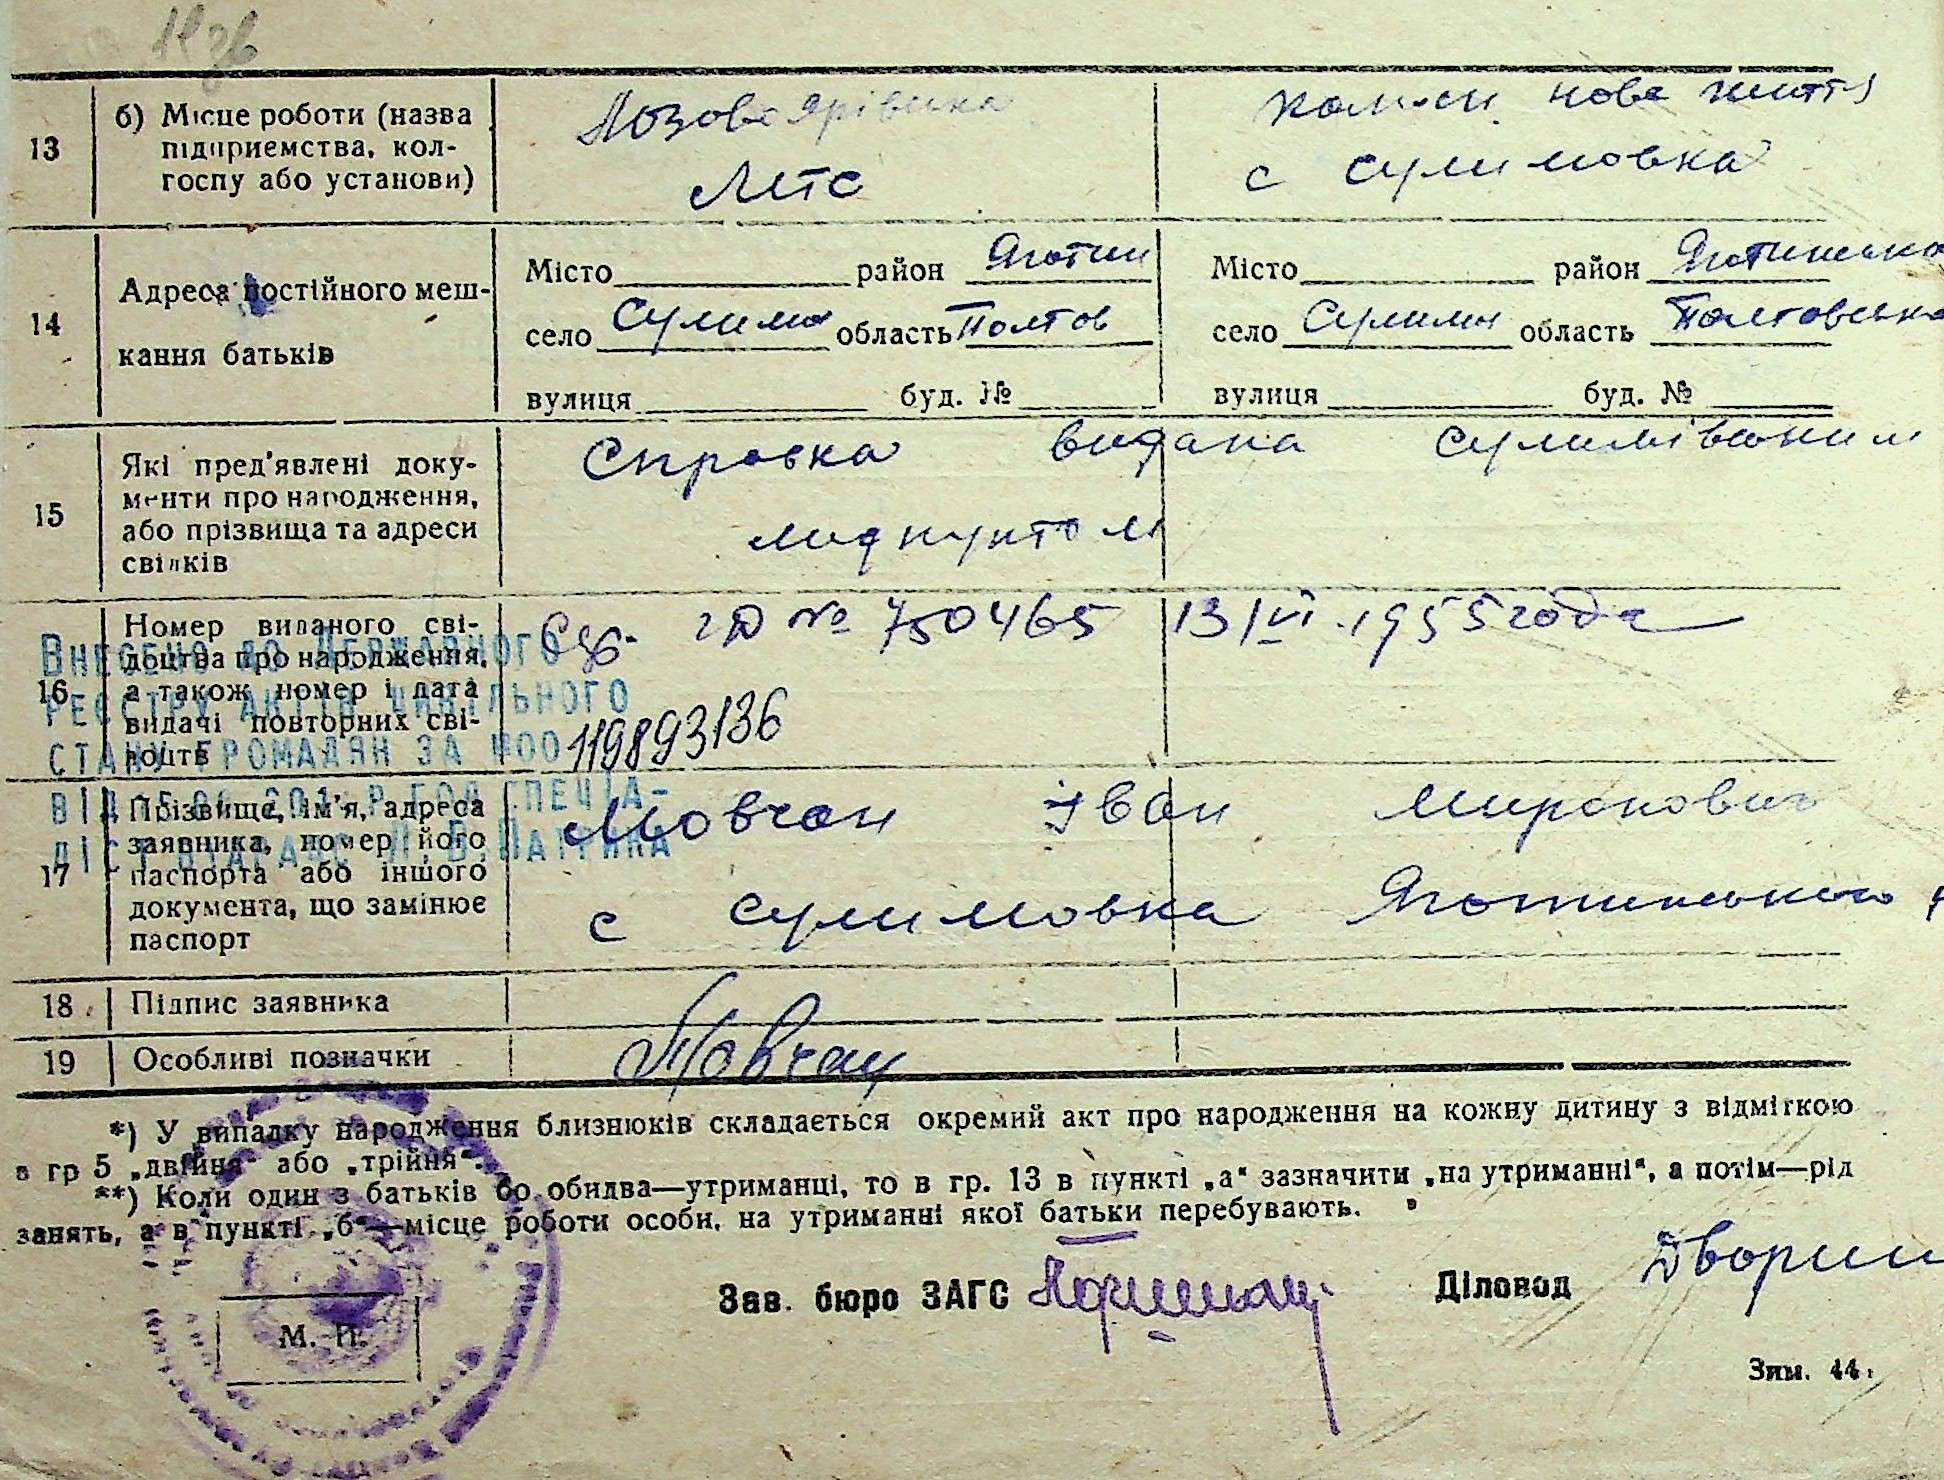 13
б) Місце роботи (назва
підприємства, кол-
госпу або установи)
Лозовоярівська
МТС
нове життя
с Сулимовка
14
Адреса постійного меш-
кання батьків
Місто район Яготин
село Сулими область Полтов
вулиця буд. №
Місто район Яготинсько
село Сулими область Полтовська
вулиця буд. №
15
Які пред'явлені доку-
менти про народження,
або прізвища та адреси
свідків
Справка видана Сулимівским
медпунктом
16
Номер виданого сві-
доцтва про народження,
а також номер і дата
видачі повторних сві-
доцтв
№ 750465 13/VI.1955 года
119893136
Внесено до Державного
реєстру актів цивільного
стану громадян за №00
17
Прізвище, ім'я, адреса
заявника, номер його
паспорта або іншого
документа, що замінює
паспорт
Мовчан Іван Миронович
с Сулимовка Яготинського
18
Підпис заявника
Мовчан
19
Особливі позначки
*) У випадку народження близнюків складається окремий акт про народження на кожну дитину з відміткою
в гр 5 „двійня“ або „трійня“.
**) Коли один з батьків бо обидва—утриманці, то в гр. 13 в пункті „а“ зазначити „на утриманні“, а потім—рід
занять, а в пункті „б“—місце роботи особи, на утриманні якої батьки перебувають.
Зав. бюро ЗАГС
Діловод
М. П.
Зим. 44.